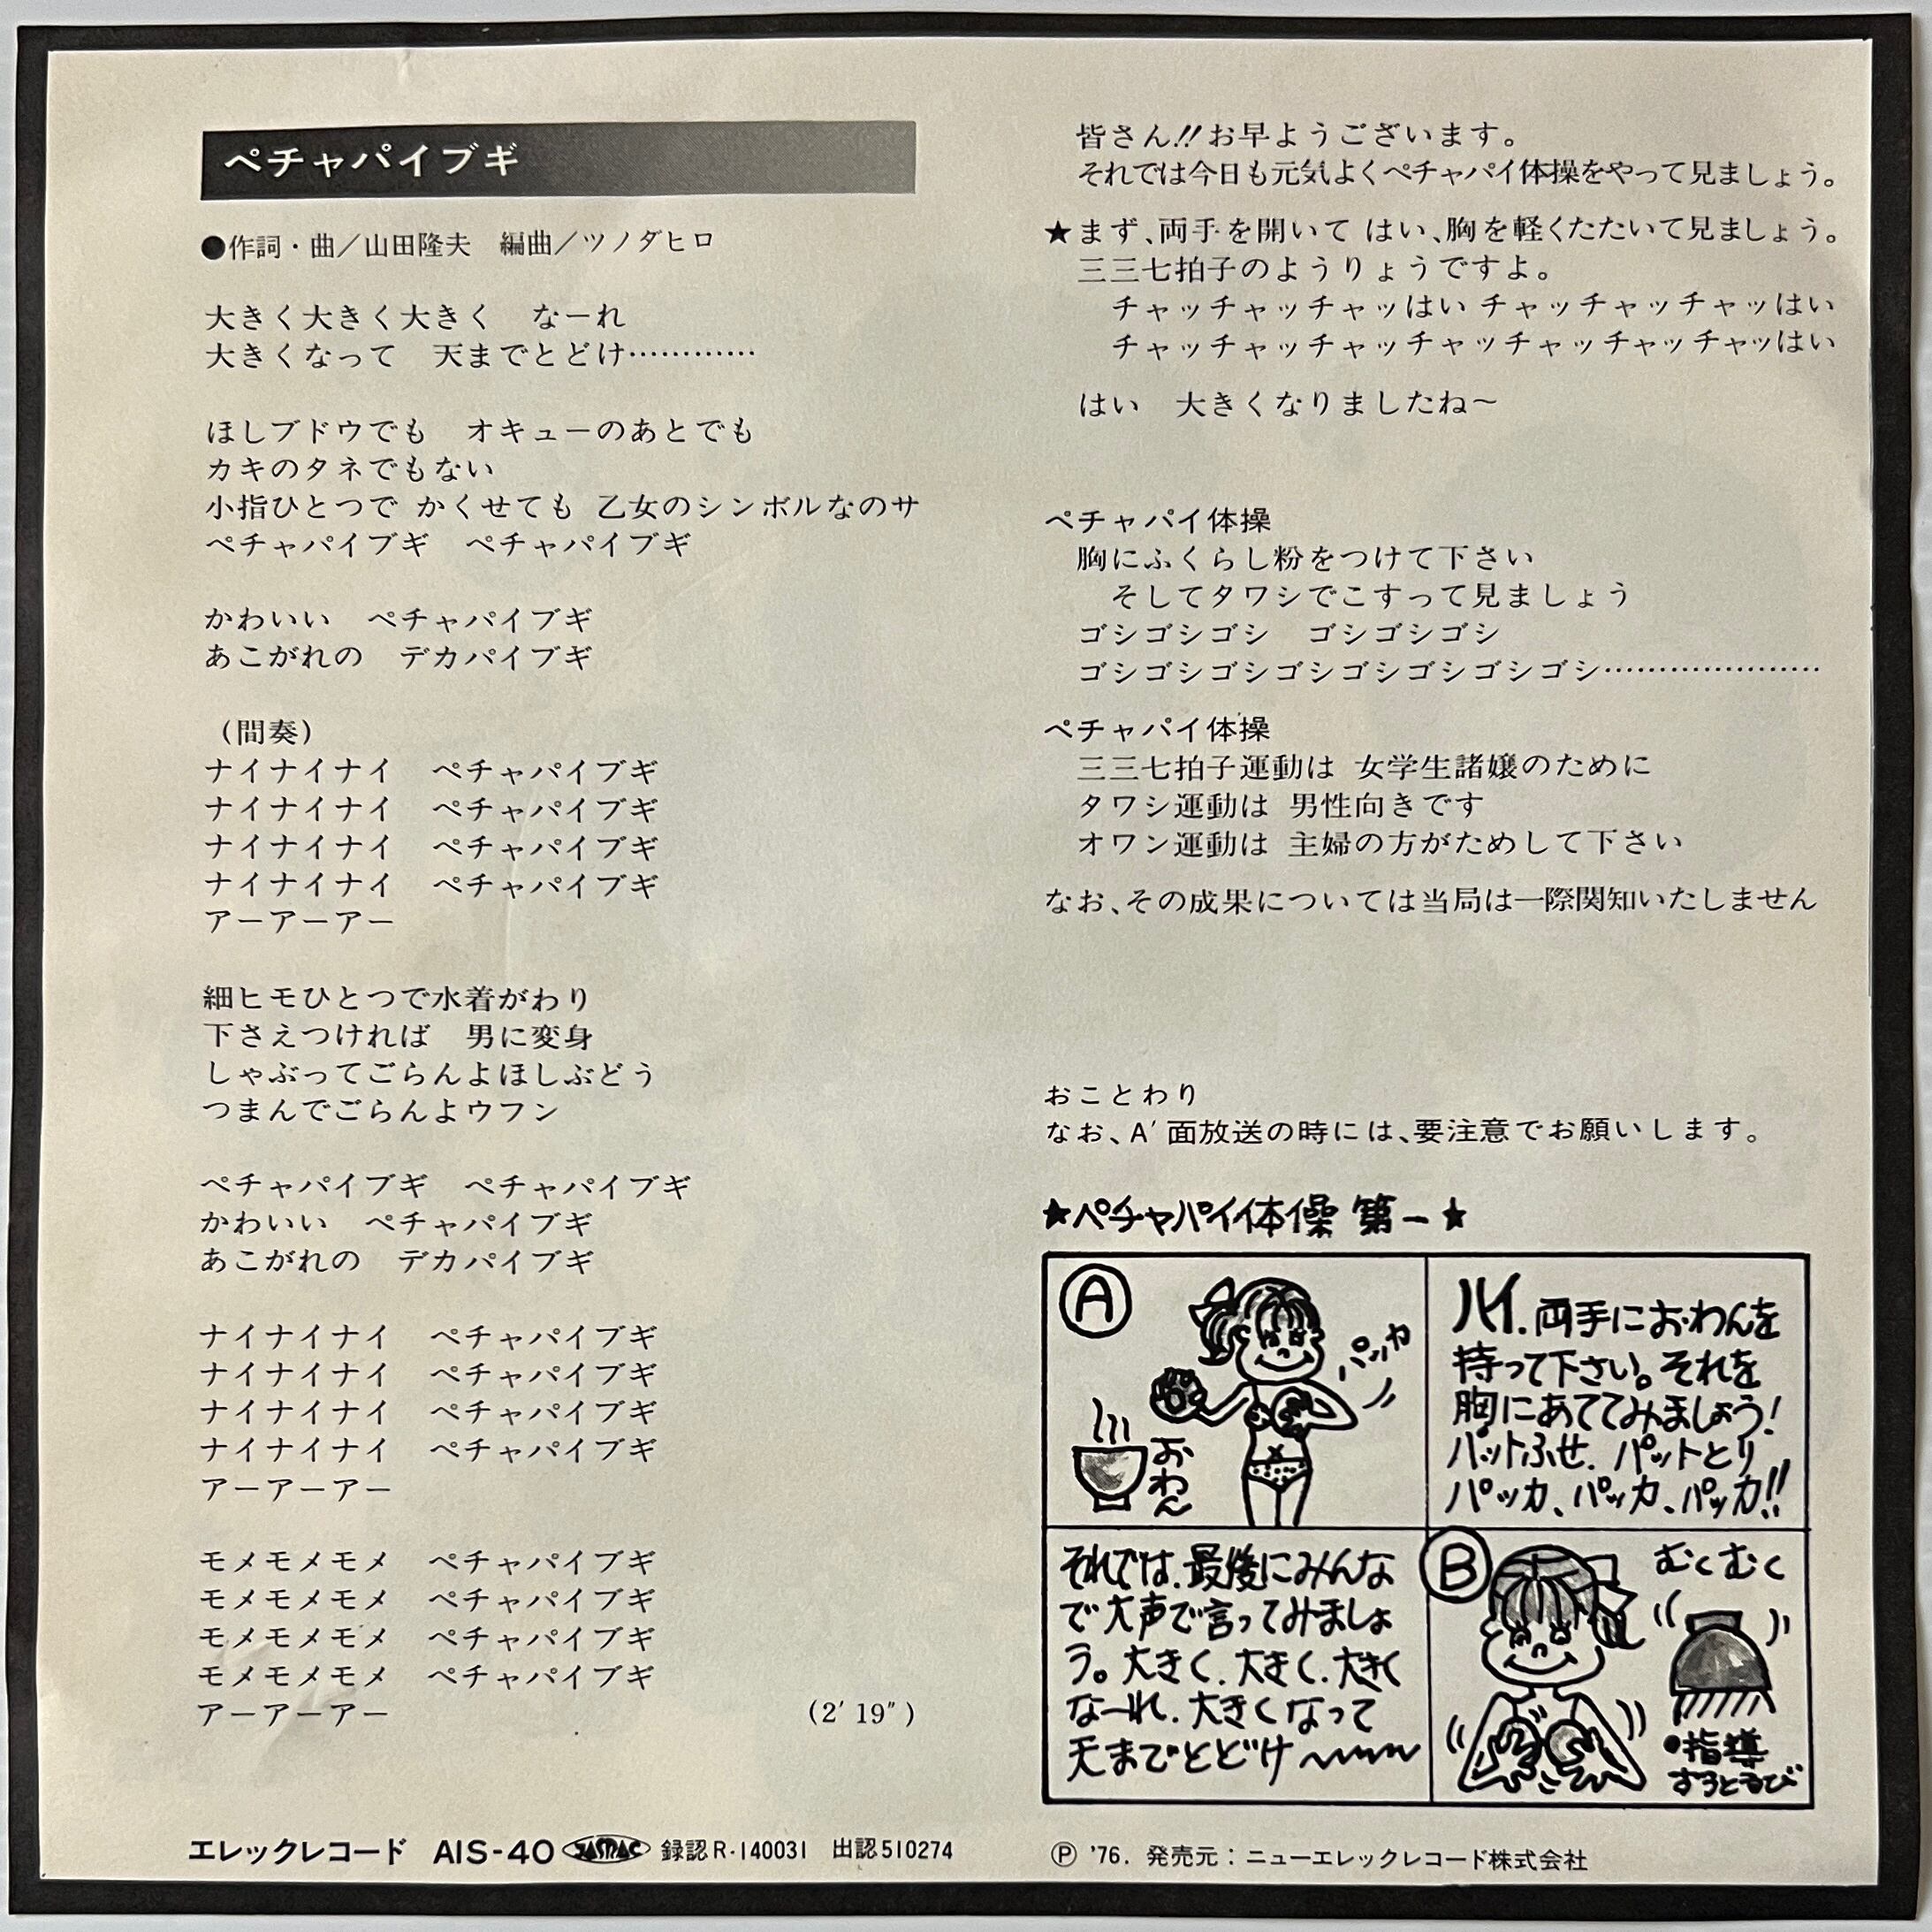 ペチャパイブギ
●作詞・曲／山田隆夫　編曲／ツノダヒロ
大きく大きく大きく　なーれ
大きくなって　天までとどけ…………
ほしブドウでも　オキューのあとでも
カキのタネでもない
小指ひとつで かくせても 乙女のシンボルなのサ
ペチャパイブギ　ペチャパイブギ
かわいい　ペチャパイブギ
あこがれの　デカパイブギ
（間奏）
ナイナイナイ　ペチャパイブギ
ナイナイナイ　ペチャパイブギ
ナイナイナイ　ペチャパイブギ
ナイナイナイ　ペチャパイブギ
アーアーアー
細ヒモひとつで水着がわり
下さえつければ　男に変身
しゃぶってごらんよほしぶどう
つまんでごらんよウフン
ペチャパイブギ　ペチャパイブギ
かわいい　ペチャパイブギ
あこがれの　デカパイブギ
ナイナイナイ　ペチャパイブギ
ナイナイナイ　ペチャパイブギ
ナイナイナイ　ペチャパイブギ
ナイナイナイ　ペチャパイブギ
アーアーアー
モメモメモメ　ペチャパイブギ
モメモメモメ　ペチャパイブギ
モメモメモメ　ペチャパイブギ
モメモメモメ　ペチャパイブギ
アーアーアー
(2′19″)
皆さん!!お早ようございます。
それでは今日も元気よくペチャパイ体操をやって見ましょう。
★まず、両手を開いて はい、胸を軽くたたいて見ましょう。
三三七拍子のようりょうですよ。
チャッチャッチャッはい チャッチャッチャッはい
チャッチャッチャッチャッチャッチャッチャッはい
はい　大きくなりましたね〜
ペチャパイ体操
胸にふくらし粉をつけて下さい
そしてタワシでこすって見ましょう
ゴシゴシゴシ　ゴシゴシゴシ
ゴシゴシゴシゴシゴシゴシゴシゴシ…………………
ペチャパイ体操
三三七拍子運動は 女学生諸嬢のために
タワシ運動は 男性向きです
オワン運動は 主婦の方がためして下さい
なお、その成果については当局は一際関知いたしません
おことわり
なお、A′面放送の時には、要注意でお願いします。
★ペチャパイ体操 第一★
A
パッカ
おわん
ハイ.両手におわんを
持って下さい。それを
胸にあててみましょう!
パットふせ.パットとり
パッカ、パッカ、パッカ!!
それでは.最後にみんな
で大声で言ってみましょ
う。大きく.大きく.大きく
なーれ.大きくなって
天までとどけ〜〜〜
B
むくむく
●指導
ずうとるび
エレックレコード　AIS-40 JASRAC 録認R-140031　出認510274
Ⓟ '76. 発売元：ニューエレックレコード株式会社